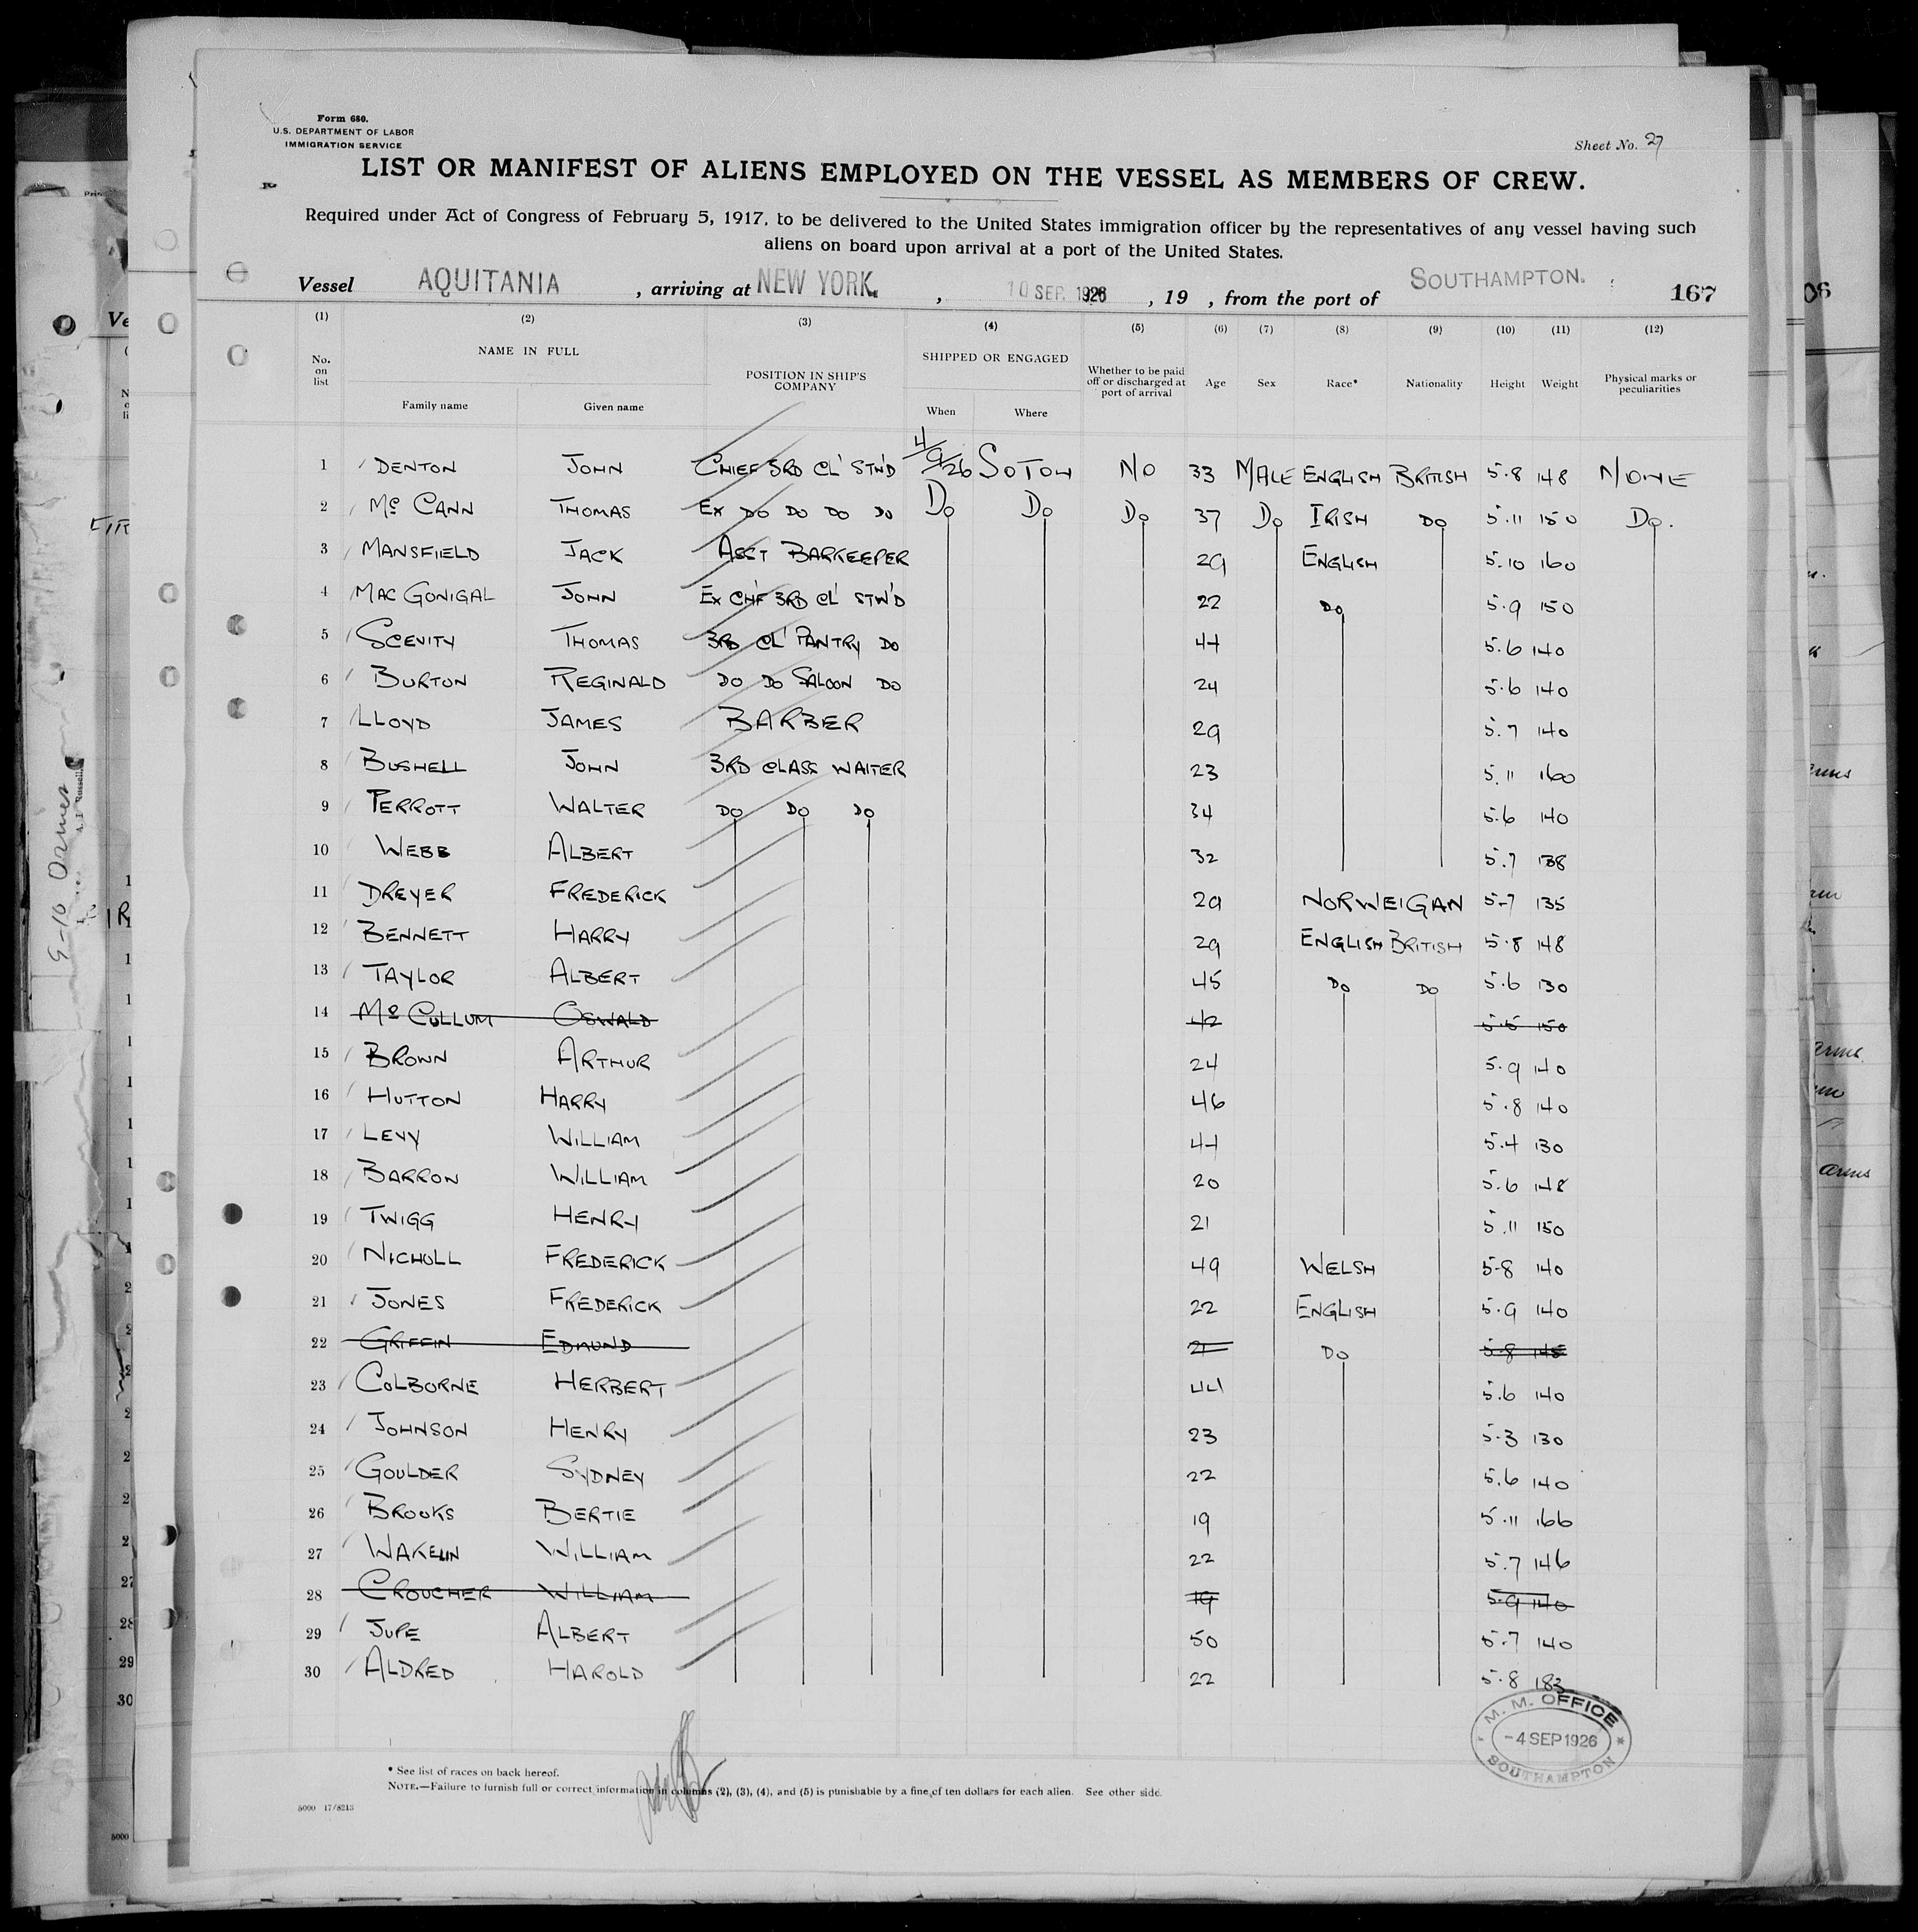 Form 680.
U.S. DEPARTMENT OF LABOR
IMMIGRATION SERVICE
Sheet No. 27
LIST OR MANIFEST OF ALIENS EMPLOYED ON THE VESSEL AS MEMBERS OF CREW.
Required under Act of Congress of February 5, 1917, to be delivered to the United States immigration officer by the representatives of any vessel having such
aliens on board upon arrival at a port of the United States.
Vessel AQUITANIA, arriving at NEW YORK, 10 SEP. 1926, 19 , from the port of SOUTHAMPTON. 167
(1) (2) (3) (4) (5) (6) (7) (8) (9) (10) (11) (12)
No. on list NAME IN FULL POSITION IN SHIP'S COMPANY SHIPPED OR ENGAGED Whether to be paid off or discharged at port of arrival Age Sex Race* Nationality Height Weight Physical marks or peculiarities
Family name Given name When Where
1 DENTON JOHN CHIEF 3RD CL' STW'D 4/9/26 SOTON NO 33 MALE ENGLISH BRITISH 5.8 148 NONE
2 McCANN THOMAS EX DO DO DO DO DO DO DO 37 DO IRISH DO 5.11 150 DO.
3 MANSFIELD JACK ASST BARKEEPER 29 ENGLISH 5.10 160
4 MACGONIGAL JOHN EX CHF 3RD CL' STW'D 22 DO 5.9 150
5 SCEVITY THOMAS 3RD CL' PANTRY DO 44 5.6 140
6 BURTON REGINALD DO DO SALOON DO 24 5.6 140
7 LLOYD JAMES BARBER 29 5.7 140
8 BUSHELL JOHN 3RD CLASS WAITER 23 5.11 160
9 PERROTT WALTER DO DO DO 34 5.6 140
10 WEBB ALBERT 32 5.7 138
11 DREYER FREDERICK 29 NORWEIGAN 5-7 135
12 BENNETT HARRY 29 ENGLISH BRITISH 5.8 148
13 TAYLOR ALBERT 45 DO DO 5.6 130
14 McCULLUM OSWALD 42 5.5 150
15 BROWN ARTHUR 24 5.9 140
16 HUTTON HARRY 46 5.8 140
17 LEVY WILLIAM 44 5.4 130
18 BARRON WILLIAM 20 5.6 148
19 TWIGG HENRY 21 5.11 150
20 NICHOLL FREDERICK 49 WELSH 5-8 140
21 JONES FREDERICK 22 ENGLISH 5.9 140
22 GRIFFIN EDMUND 21 DO 5.8 145
23 COLBORNE HERBERT 44 5.6 140
24 JOHNSON HENRY 23 5.3 130
25 GOULDER SYDNEY 22 5.6 140
26 BROOKS BERTIE 19 5.11 166
27 WAKELIN WILLIAM 22 5.7 146
28 CROUCHER WILLIAM 19 5.9 140
29 JUPE ALBERT 50 5.7 140
30 ALDRED HAROLD 22 5.8 183
M. M. OFFICE
-4 SEP 1926
SOUTHAMPTON
* See list of races on back hereof.
NOTE.—Failure to furnish full or correct information in columns (2), (3), (4), and (5) is punishable by a fine of ten dollars for each alien. See other side.
5000 17/8213